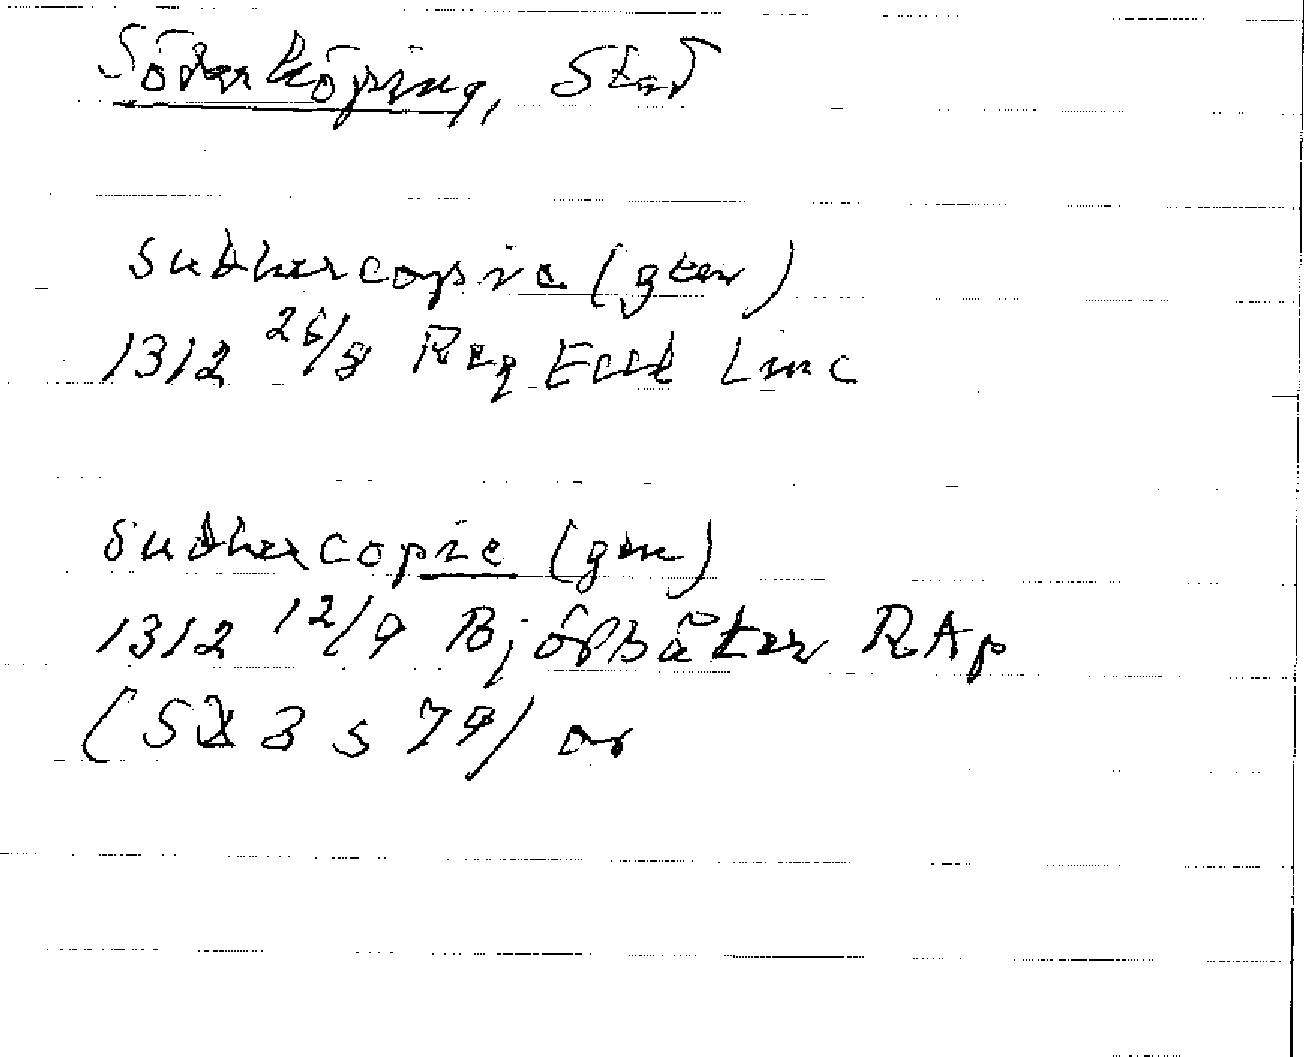 Söderköping, Stad
Sudhercopie (gen)
1312 26/8 Reg Eccl Linc
Sudhercopie (gen)
1312 12/9 Björsäter RAp
(SD 3 s 79) or